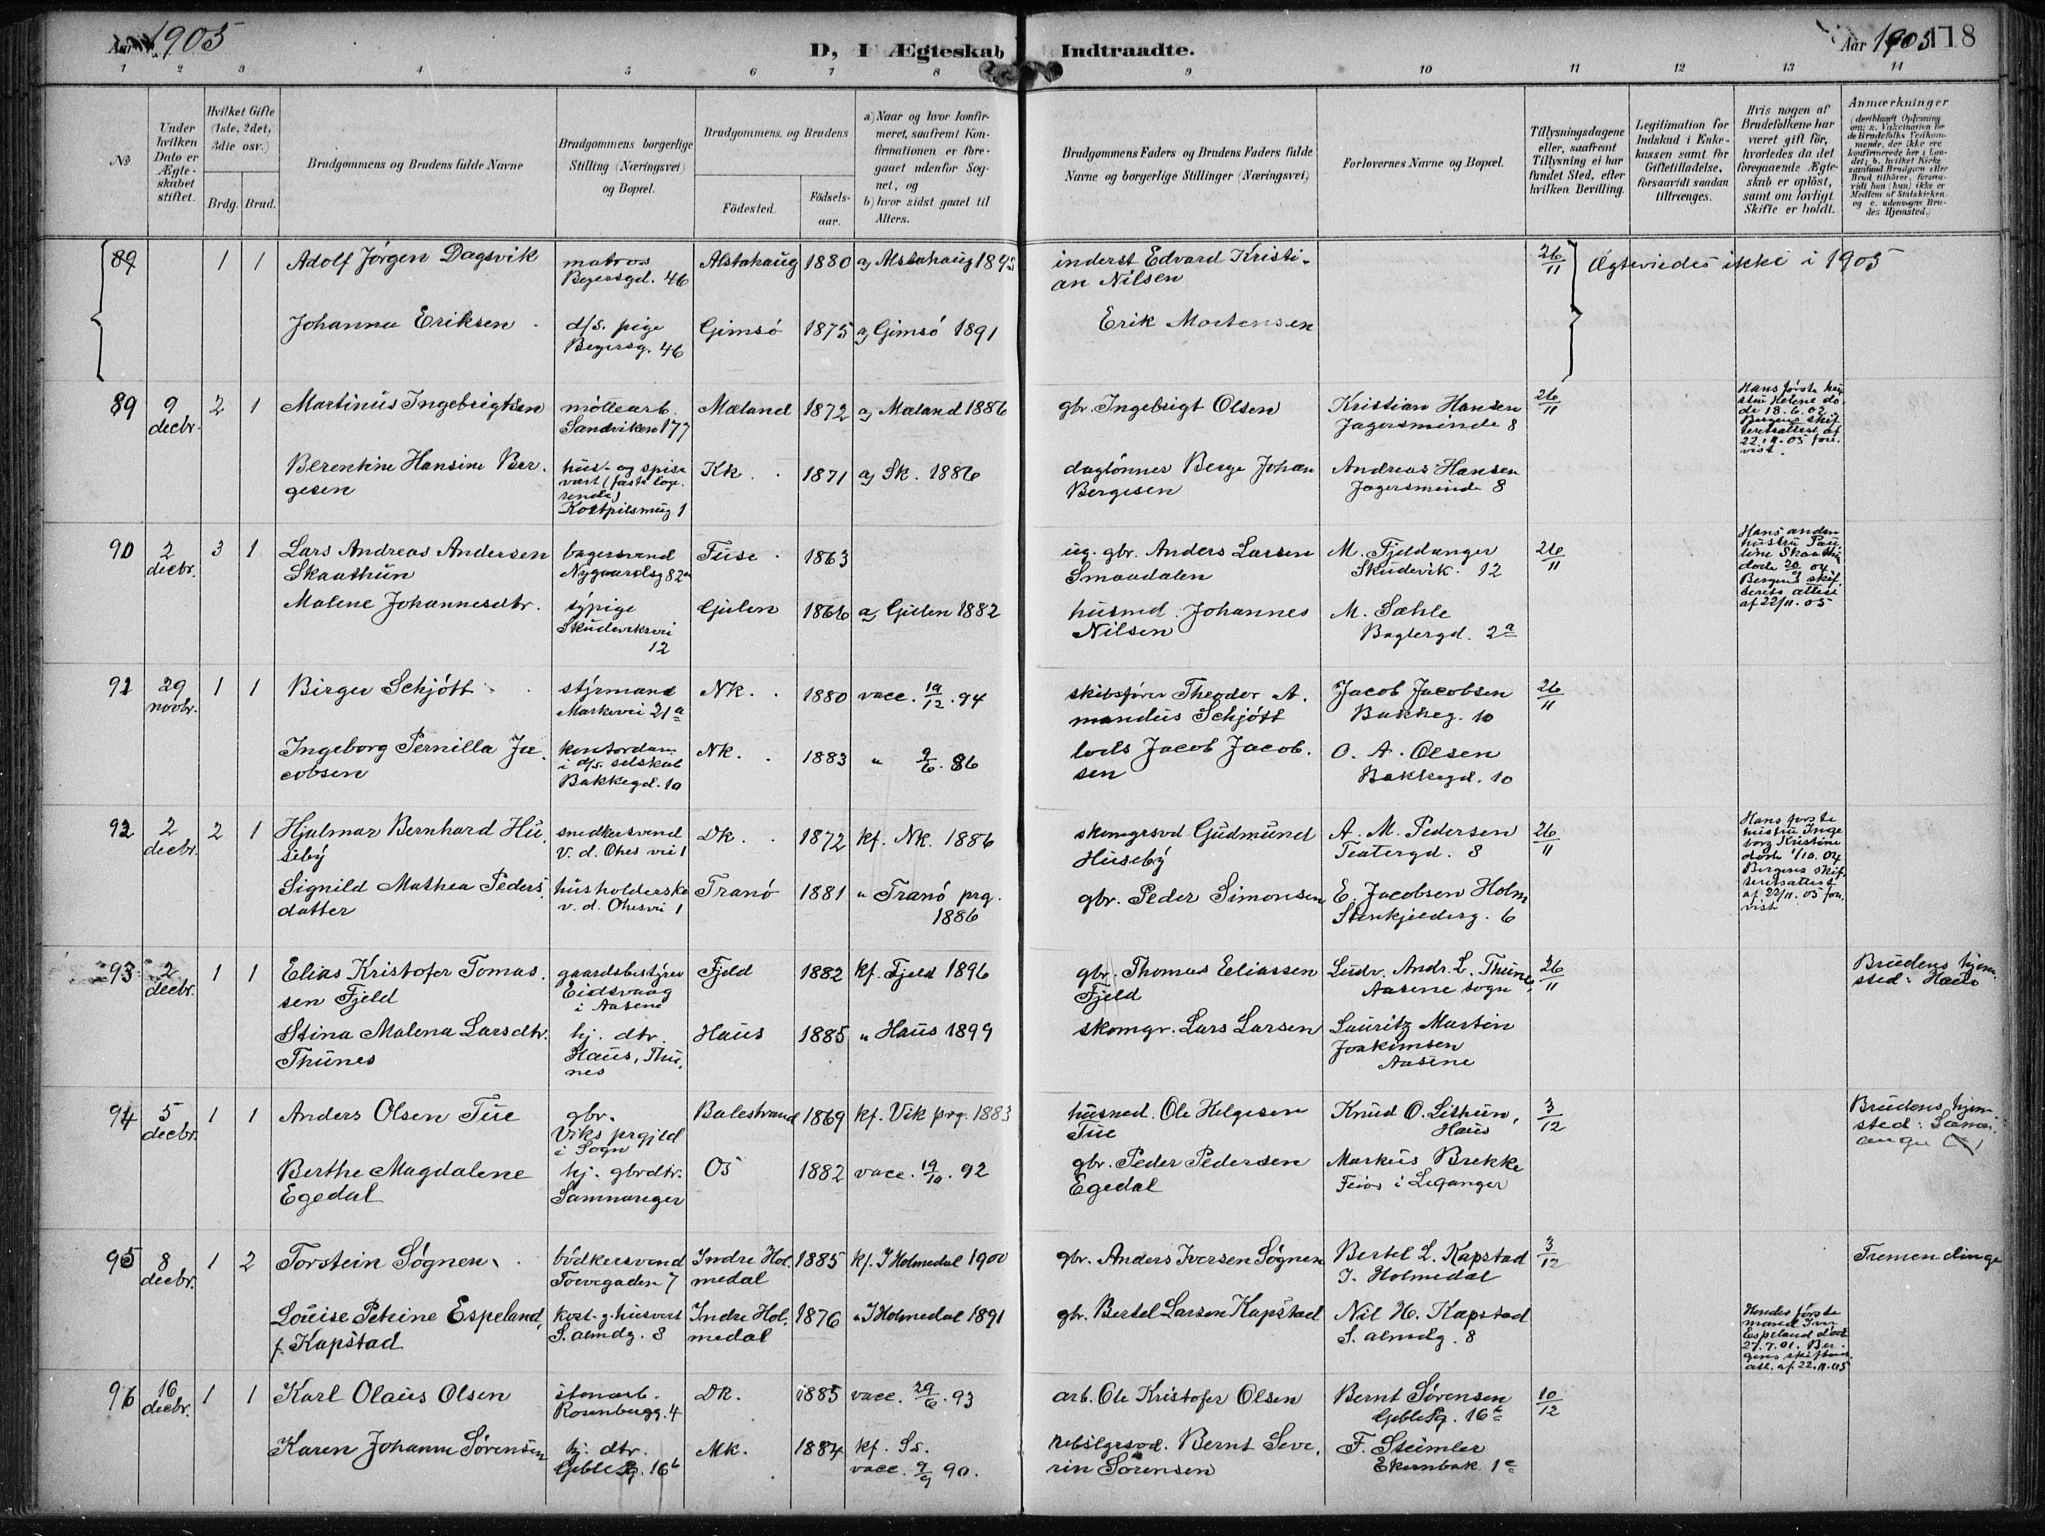 Aar 1905
D, I Ægteskab Indtraadte.
Aar 1905
118
1 2 3 4 5 6 7 8 9 10 11 12 13 14
No
Under hvilken Dato er Ægteskabet stiftet.
Hvilket Gifte (1ste, 2det, 3die osv.)
Brdg. Brud.
Brudgommens og Brudens fulde Navne
Brudgommens borgerlige Stilling (Næringsvei) og Bopæl.
Brudgommens og Brudens
Fødested.
Fødselsaar.
a) Naar og hvor konfirmeret, saafremt Konfirmationen er foregaaet udenfor Sognet, og
b) hvor sidst gaaet til Alters.
Brudgommens Faders og Brudens Faders fulde Navne og borgerlige Stillinger (Næringsvei)
Forlovernes Navne og Bopæl.
Tillysningsdagene eller, saafremt Tillysning ei har fundet Sted, efter hvilken Bevilling.
Legitimation for Indskud i Enkekassen samt for Giftetilladelse, forsaavidt saadan tiltrænges.
Hvis nogen af Brudefolkene har været gift før, hvorledes da det foregaaende Ægteskab er opløst, samt om lovligt Skifte er holdt.
Anmærkninger
89 1 1 Adolf Jørgen Dagsvik matros Alstahaug 1880 a) Alstahaug inderst Edvard Kristi- 26/11 Ægtevies ikke i 1905
46 an Nilsen
Johanna Eriksen d/s. pige Gimsø 1875 a) Gimsø 1891 Erik Mortensen
46
89 9 2 1 Martinus Ingebrigtsen møllearb. Mæland 1872 a) Mæland 1886 gbr. Ingebrigt Olsen Kristian Hansen 26/11 Hans første hu
decbr. Sandviken 177 Jægersminde 8 stru Helene dø
de 18.6.02
Bergens skif
teretsattest af
22.11.05 fore
vist.
Berentine Hansine Ber- hus- og spise Kk. 1871 a) Sk. 1886 daglønner Berge Johan Andreas Hansen
gesen vært (faste loge- Bergesen Jægersminde 8
rende)
90 2 3 1 Lars Andreas Andersen bagersvend Fuse 1863 ug. gbr. Anders Larsen M. Fjeldanger 26/11 Hans anden
decbr. Skaathun Nygaardsg 82a Smaadalen Skudevik. 12 hustru Pau
line Skaathun
døde 20/9 04
Bergens skif
terets attest
af 22/11.05
Malene Johannesdtr. sypige Gulen 1866 a) Gulen 1882 husmd. Johannes M. Sæhle
Skudeviksvei Nilsen Baglergd. 2a
12
91 29 1 1 Birger Schjött styrmand Nk. 1880 vacc. 19/12. 94 skibsfører Theodor A- Jacob Jacobsen 26/11
novbr. Markevei 21a mandus Schjött Bakkeg. 10
Ingeborg Pernilla Ja- kontordame Nk. 1883 " 9/6. 86 lods Jacob Jacob- O. A. Olsen
cobsen i d/s. selskab sen Bakkegd. 10
Bakkegd. 10
92 2 2 1 Hjalmar Bernhard Hu snedkersvend Dk. 1872 kf. Nk. 1886 skomgrsvd Gudmund A. M. Pedersen 26/11 Hans første
decbr. seby V. d. Ohes vei 1 Huseby Teatergd. 8 hustru Inge
borg Kristine
døde 1/10.04
Bergens skif
teretsattest
af 22/11.05 fore
vist
Signild Mathea Peders husholderske Tranø 1881 " Tranø prg. gbr. Peder Simonsen E. Jacobsen Holm
datter v. d. Ohesvei 1 1886 Stenkjelderg. 6
93 2 1 1 Elias Kristofer Tomas- gaardsbestyrer Fjeld 1882 kf. Fjeld 1896 gbr. Thomas Eliassen Ludv. Andr. L. Thunes, 26/11 Brudens hjem-
decbr. sen Fjeld Eidsvaag Fjeld Aasene sogn sted: Haus
i Aasene
Stina Malena Larsdtr. hj. dtr. Haus 1885 " Haus 1899 skomgr. Lars Larsen Lauritz Martin
Thunes Haus, Thu- Joakimsen
nes Aasene
94 5 1 1 Anders Olsen Tue gbr. Balestrand 1869 kf. Vik prg. 1883 husmd. Ole Helgesen Knud O. Lithun, 3/12 Brudens hjem-
decbr. Viks prgjld Tue Haus sted:
i Sogn
Berthe Magdalene hj. gbrdtr. Os 1882 vacc. 19/10. 92 gbr. Peder Pedersen Markus Brekke
Egedal Samnanger Egedal Feios i Leganger
95 8 1 2 Torstein Søgnen bødkersvend Indre Hol- 1885 kf. I Holmedal 1900 gbr. Anders Iversen Søgnen Bertel L. Kapstad 3/12 Tremendinge
decbr. Torvegaden 7 medal I. Holmedal
Louise Peteine Espeland, kost- g. husvert Indre Hol- 1876 " I Holmedal 1891 gbr. Bertel Larsen Kapstad Nil H. Kapstad Hendes første
f. Kapstad S. almdg. 8 medal S. almdg. 8 mand Iver
Espeland død
27.7.01. Ber-
gens skifter.
att. af 22.11.05
96 16 1 1 Karl Olaus Olsen stenarb. Dk. 1885 vacc. 29/6. 93 arb. Ole Kristofer Olsen Bernt Sørensen 10/12
decbr. Rosenbergg. 4
Karen Johanne Sørensen hj. dtr. Mk. 1884 kf. Ss. Bernt Seve- F. Steimler
16b vacc. 9/9 90. rin Sørensen